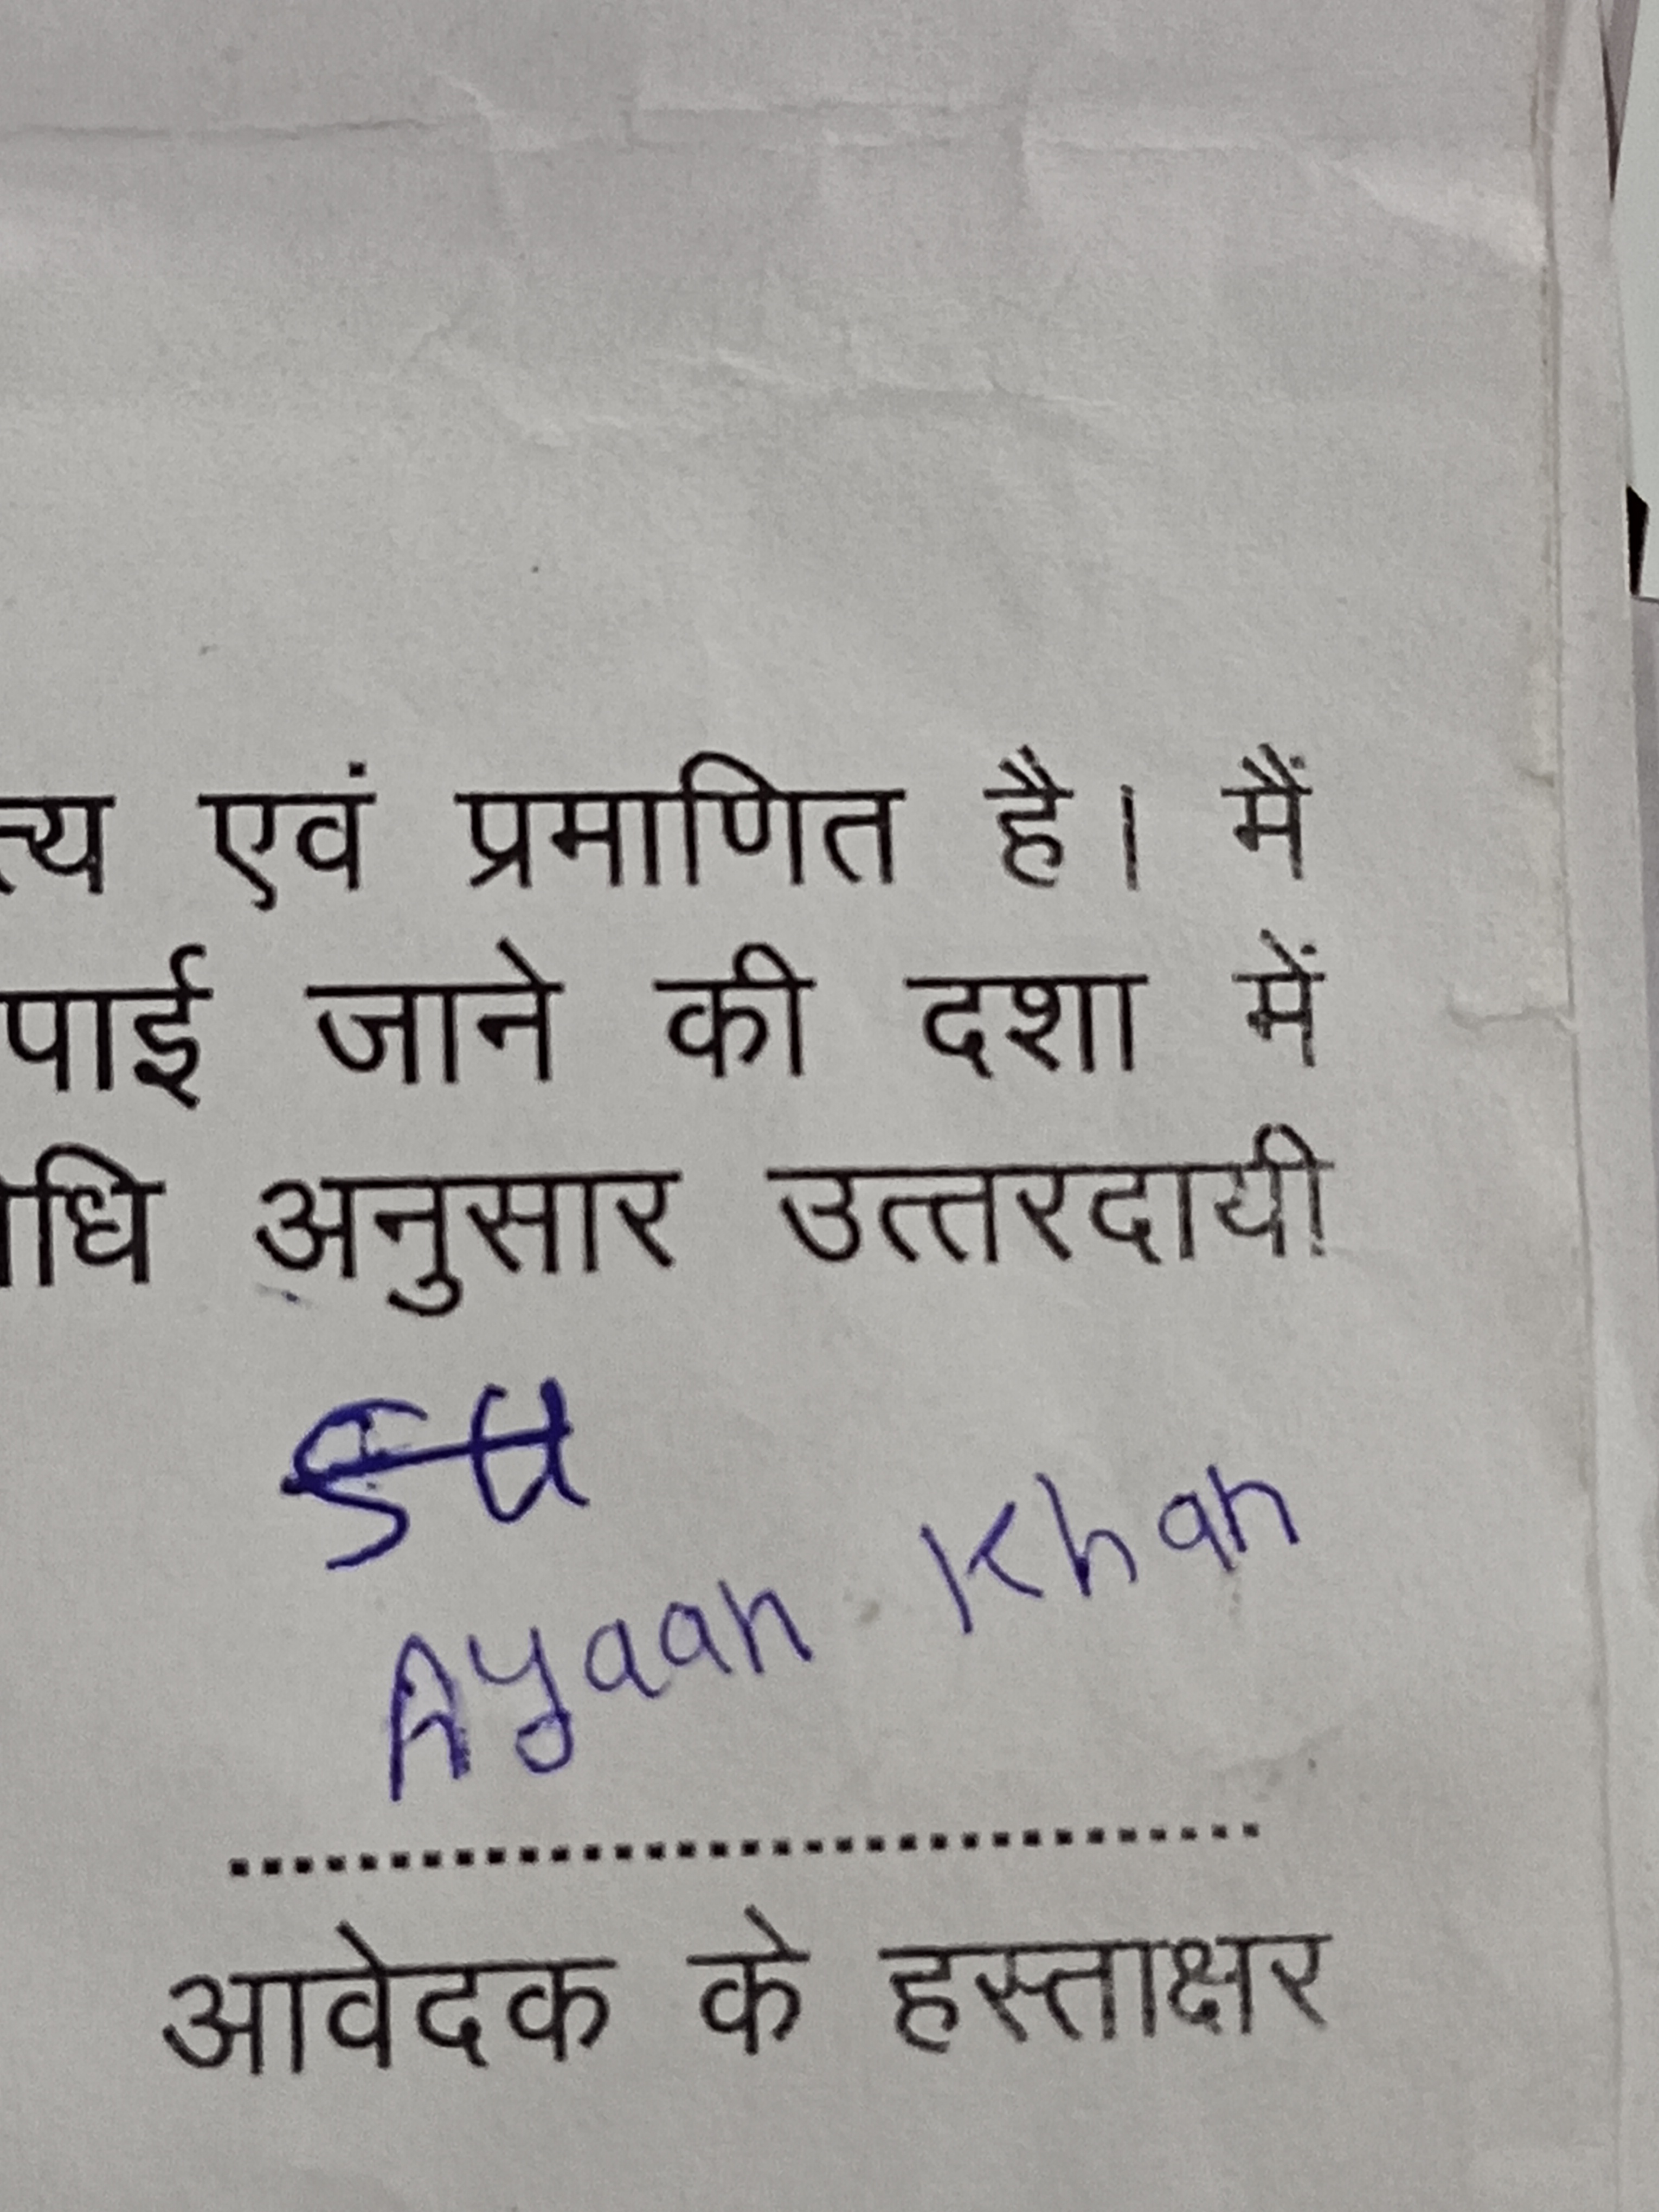 एवं प्रमाणित है। मैं
पाई जाने की दशा में
अनुसार उत्तरदायी
Ayaan Khan
आवेदक के हस्ताक्षर